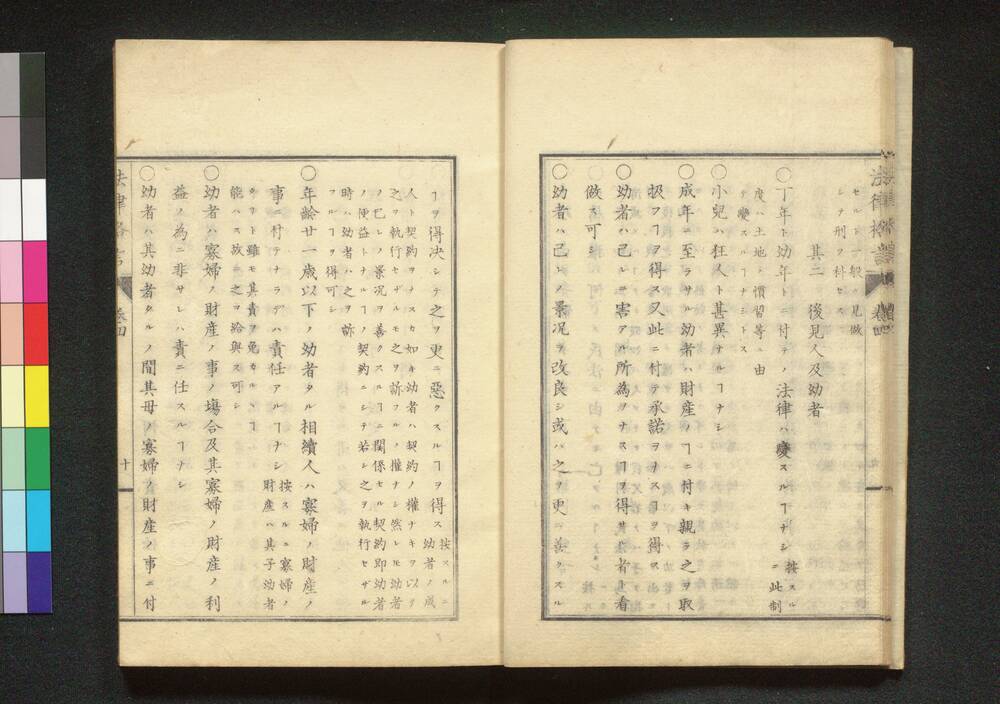 セルト一般ニ見做
シテ刑ヲ科セス
其二　後見人及幼者
〇丁年ト幼年トニ付テノ法律ハ變スルヿナシ按スルニ此制
度ハ土地ノ慣習等ニ由
テ變スルヿナシトス
〇小兒ハ狂人ト甚異ナルヿナシ
〇成年ニ至ラサル幼者ハ財産ノヿニ付キ親ラ之ヲ取
扱フヿヲ得ス又此ニ付テ承諾ヲナスヿヲ得ス
〇幼者ハ己レニ害アル所為ヲナスヿヲ得
看
做ス可
〇幼者ハ己レノ景况ヲ改良シ或ハ之ヲ更ニ善クスル
ヿヲ得决シテ之ヲ更ニ惡クスルヿヲ得ス按スルニ
幼者ノ成
人ト契約ヲナスカ如キ幼者ハ契約ノ權ナキヲ以テ
之ヲ執行セザルモ之ヲ訴フルノ權ナシ然レ𪜈幼者
ノ己レノ景况ヲ善クスルヿニ關係セル契約即幼者
ノ便益トナルヿノ契約ニシテ若シ之ヲ執行セザル
時ハ幼者ハ之ヲ訴
フルヿヲ得可シ
〇年齡廿一歳以下ノ幼者タル相續人ハ寡婦ノ財産ノ
事ニ付テナラデハ責任アルヿナシ按スルニ寡婦ノ
財産ハ其子幼者
タリト雖モ其責ヲ免カルヽヿ
能ハス故ニ之ヲ給與ス可シ
〇幼者ハ寡婦ノ財産ノ事ノ塲合及其寡婦ノ財産ノ利
益ノ為ニ非サレハ責ニ任スルヿナシ
〇幼者ハ其幼者タルノ間其母ノ寡婦ノ財産ノ事ニ付
十